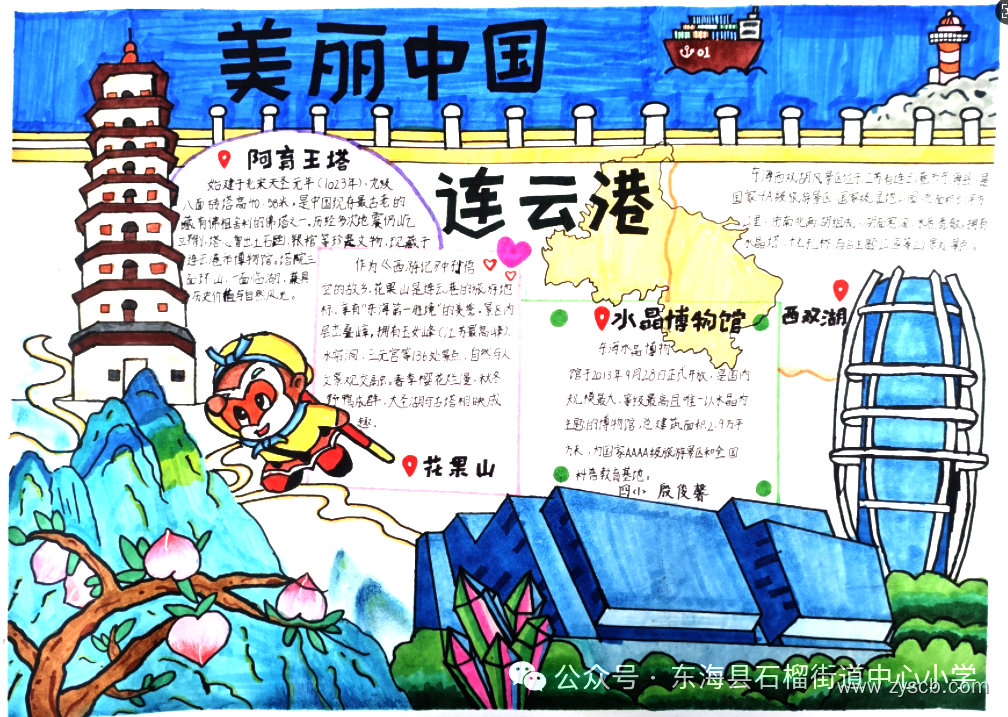 美丽中国
01
连云港
阿育王塔
始建于北宋天圣元年（1023年），九级
八面砖塔高40.58米。是中国现存最古老的
藏有佛祖舍利的佛塔之一。历经多次地震仍屹
立不倒，塔心曾出土石函，银棺等珍墨文物，现藏于
连云港市博物馆。塔院三
面环山，一面临湖，兼具
历史价值与自然风光。
作为《西游记》中孙悟
空的故乡，花果山是连云港的旅游地
标，享有“东海第一胜境”的美誉。景区内
层峦叠嶂，拥有玉女峰（江苏最高峰）
水帘洞，三元宫等136处景点，自然与人
文景观交融。春季樱花烂漫，秋冬
野鸭成群，大圣湖与古塔相映成
趣。
花果山
东海西双湖风景区位于江苏省连云港市东海县，是
国家4A级旅游景区
水晶博物馆
东海水晶博物
馆于2013年9月28日正式开放，是国内
规模最大，等级最高且唯一以水晶为
主题的博物馆，总建筑面积2.9万平
方米，为国家AAAA级旅游景区和全国
科普教育基地。
四小 殷俊馨
西双湖
公众号·东海县石榴街道中心小学
www.zyscb.com